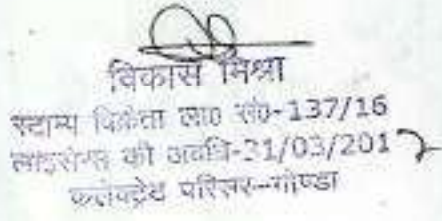 विकास मिश्रा
स्टाम्प विक्रेता ला0 सं0-137/16
लाइसेन्स की अवधि-31/03/2017
कलेक्ट्रेट परिसर-गोण्डा